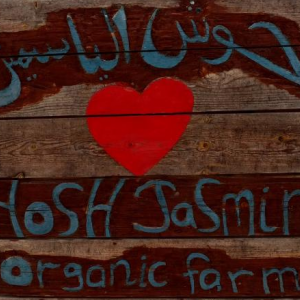 حوش الياسمين
HOSH JaSmin
organic farm